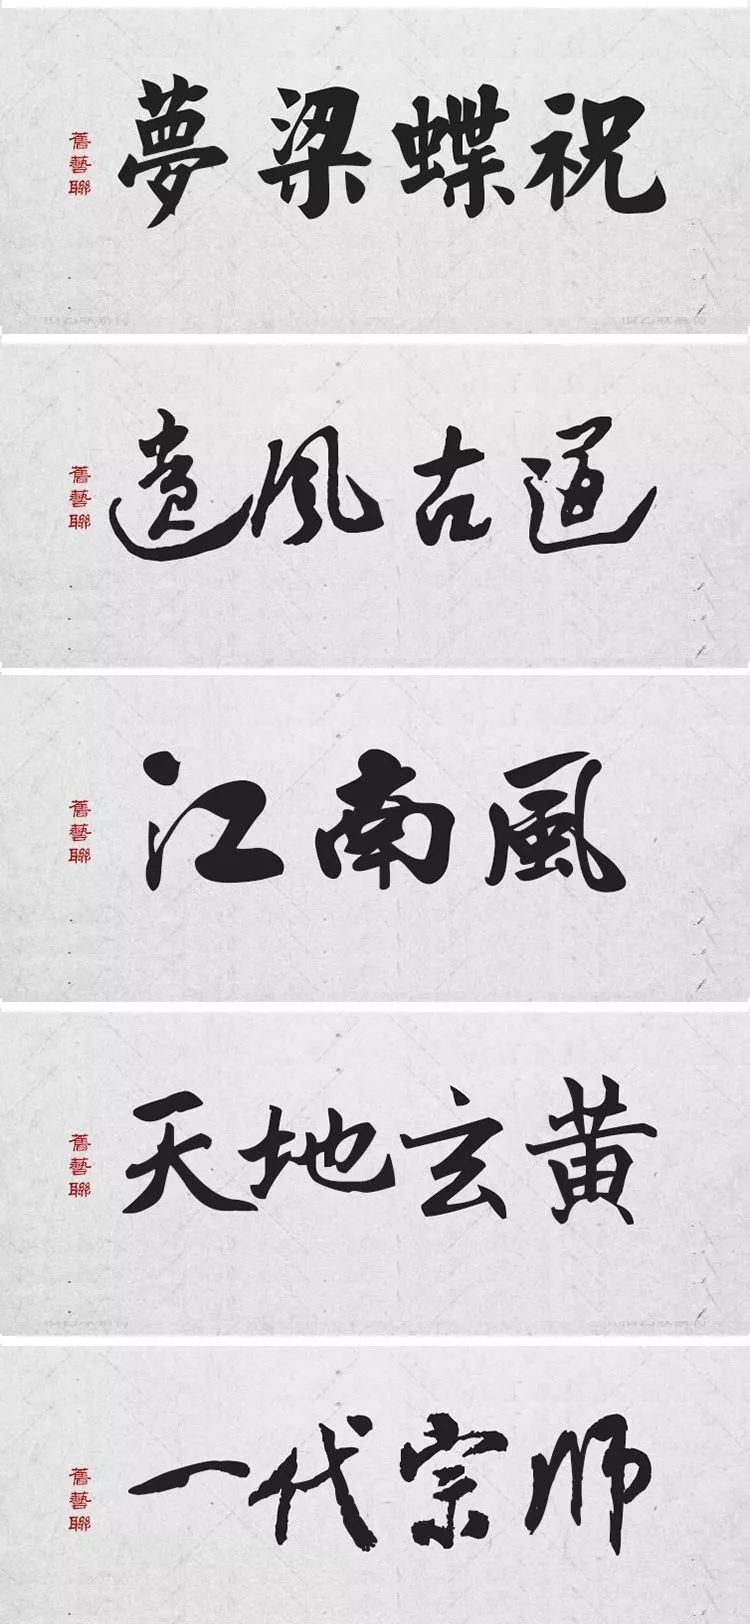 夢梁蝶祝
舊藝聯
遗风古道
舊藝聯
江南風
舊藝聯
天地玄黄
舊藝聯
一代宗师
舊藝聯